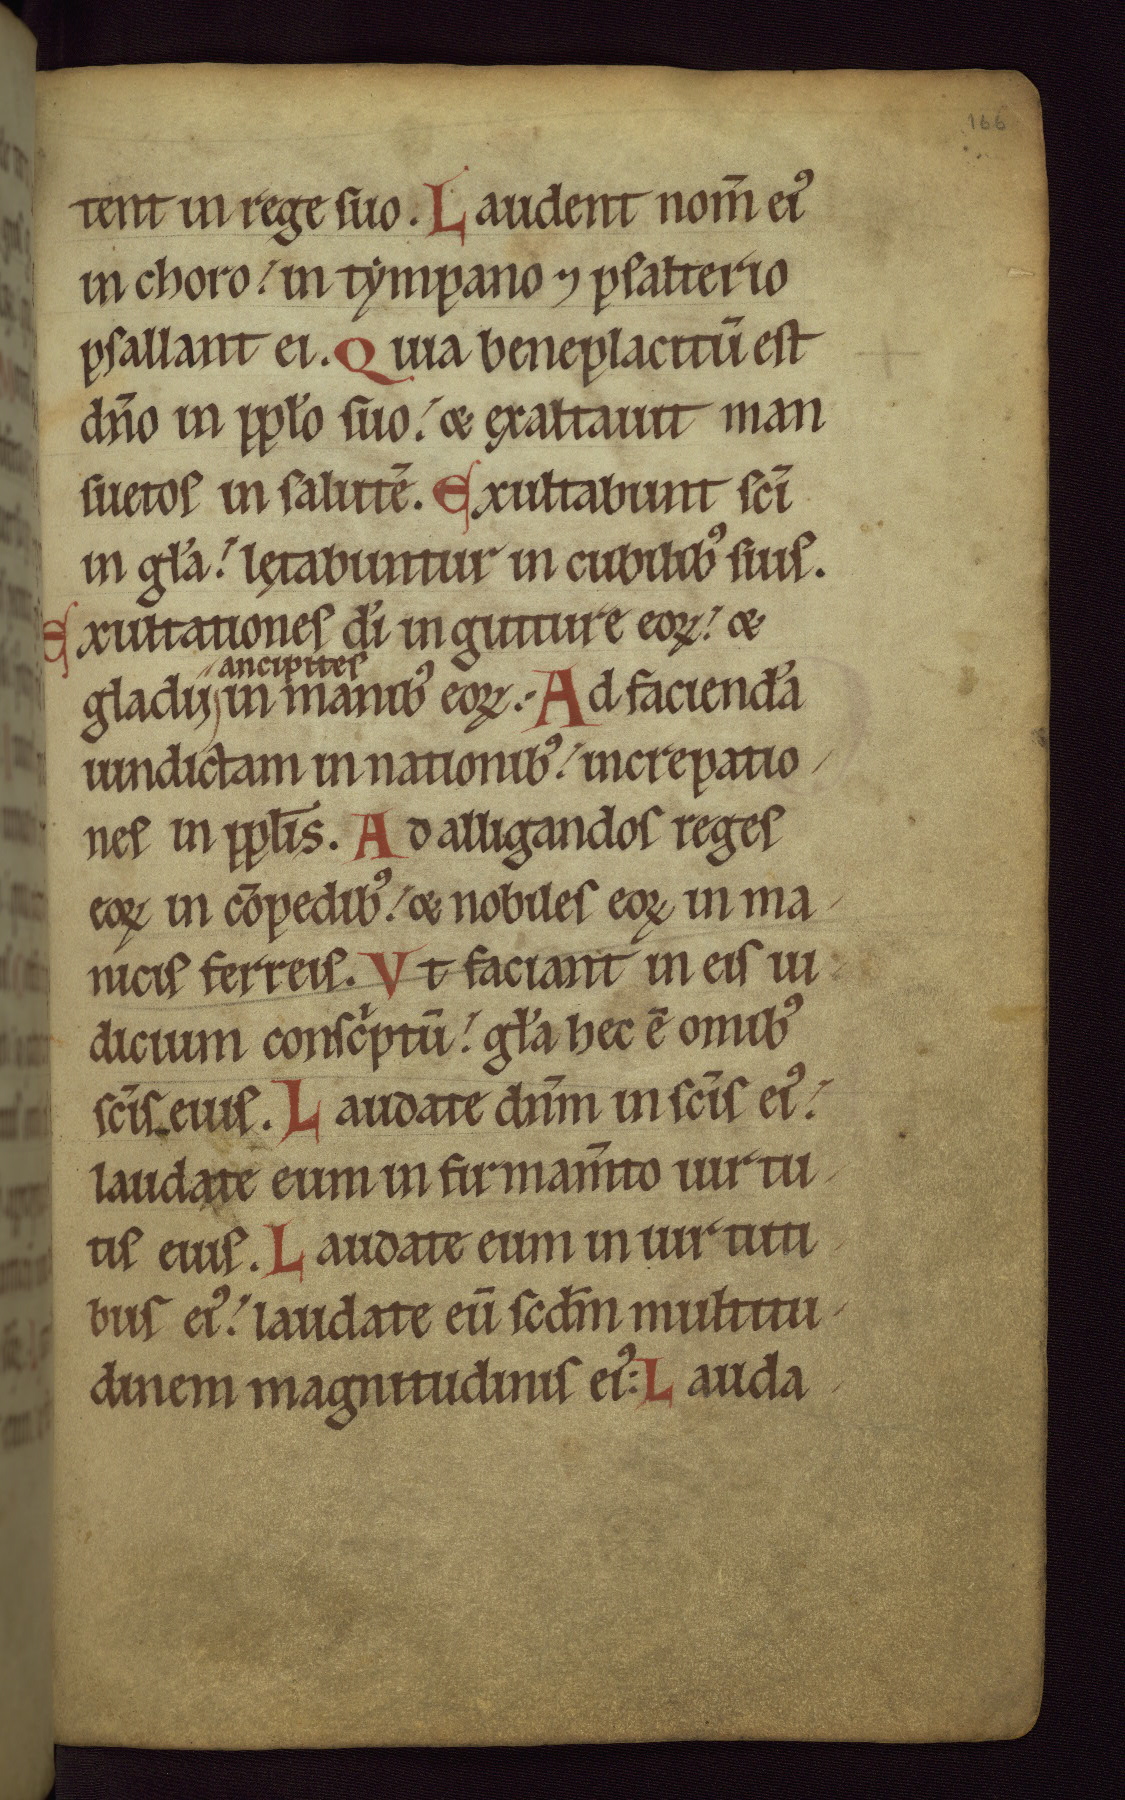 166
tent in rege suo. Laudent nom̄ eiꝰ
in choro! in tẏmpano ⁊ psalterio
psallant ei. Quia beneplacitū est
dn̄o in pp̄lo suo! & ęxaltauit man
suetos in salutē. Exultabunt sc̄i
in gła! lętabuntur in cubilibꝰ suis.
Exultationes di̅ in gutture eoꝝ! &
ancipites
gladii in manibꝰ eoꝝ. Ad faciend̄a
uindictam in nationibꝰ! increpatio
nes in pp̄lis. Ad alligandos reges
eoꝝ in cōpedibꝰ! & nobiles eoꝝ in ma
nicis ferreis. Vt faciant in eis iu
dicium consc̍ptū! gła hec ē om̅ibꝰ
sc̄is eius. Laudate dn̄m in sc̄is eiꝰ!
laudate eum in firmam̄to uirtu
tis eius. Laudate eum in uirtuti
bus eiꝰ! laudate eū scd̄m multitu
dinem magnitudinis eiꝰ: Lauda